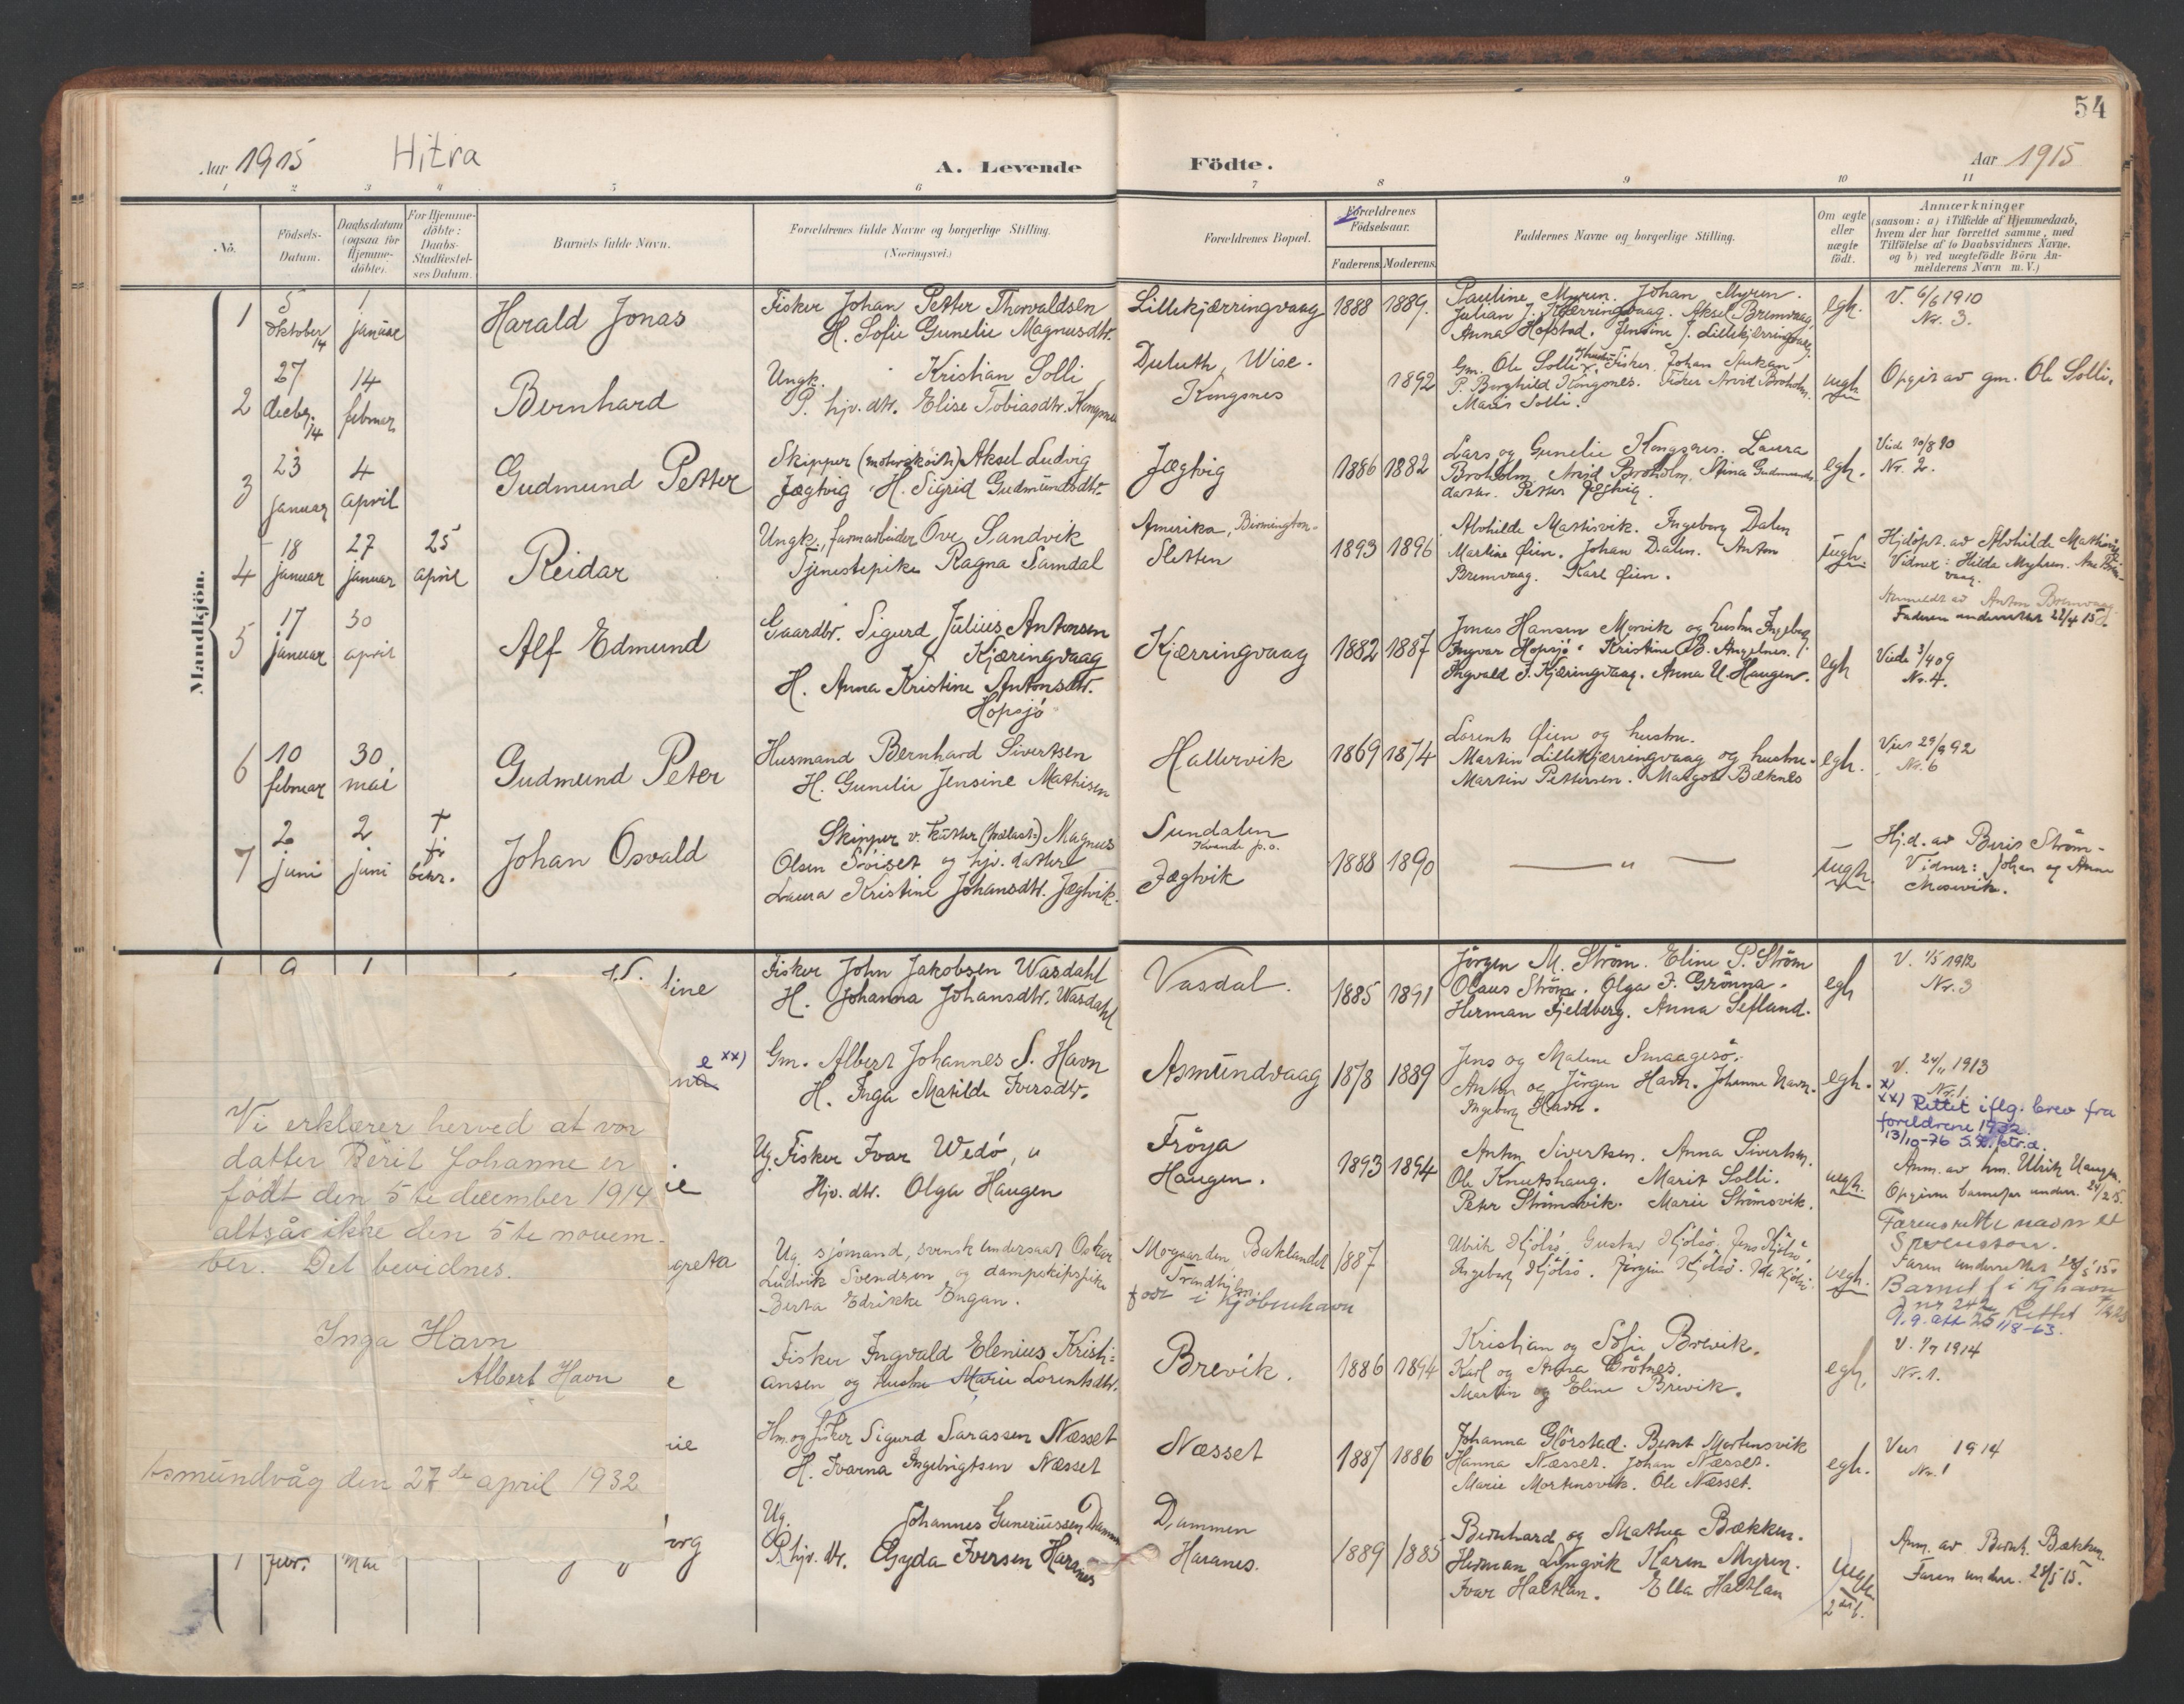 54
Aar 1915
Hitra
A. Levende
Födte.
Aar 1915
1 2 3 4 5 6 7 8 9 10 11
Nö.
Födsels-
Datum.
Daabsdatum
(ogsaa for
Hjemme-
döbte).
For Hjemme-
döbte:
Daabs-
Stadfæstel-
ses Datum.
Barnets fulde Navn.
Forældrenes fulde Navne og borgerlige Stilling.
(Næringsvei.)
Forældrenes Bopæl.
Forældrenes
Födselsaar.
Faderens. Moderens.
Faddernes Navne og borgerlige Stilling.
Om ægte
eller
uægte
födt.
Anmærkninger
(saasom: a) i Tilfælde af Hjemmedaab,
hvem der har forrettet samme, med
Tilföielse af to Daabsvidners Navne,
og b) ved uægtefödte Börn An-
melderens Navn m. V.)
Mandkjön.
1
5
oktober
14
1
januar
Harald Jonas
Fisker Johan Petter Thorvaldsen
H. Sofie Gunelie Magnusdtr.
Lillekjærringvaag
1888 1889.
Pauline Myren. Johan Myren.
Julian J. Kjærringvaag. Aksel Bremvaag.
Anna Hofstad. Jensine J. Lillekjærringvaag.
egt.
V. 6/6 1910
Nr. 3.
2
27
decbr.
14
14
februar
Bernhard
Ungk. Kristian Solli
P. hjv. dtr. Elise Tobiasdtr. Kongsnes
Duluth, Wisc.
Kongsnes
1892
Gm. Ole Solli, Fisker Johan
P. Borghild Kongsnes. Fisker Arvid Broholm.
Maris Solli.
uegt.
Opgit av gm. Ole Solli.
3
23
januar
4
april
Gudmund Petter
Skipper (motorskøite) Aksel Ludvig
Jægtvig H. Sigrid Gudmundsdtr.
Jægtvig
1886 1882
Lars og Gunelie Kongsnes. Laura
Broholm. Arvid Broholm. Stina Gudmunds-
datter. Petter Jægtvig.
egt.
Viede 10/8 10
Nr. 2.
4
18
januar
27
januar
25
april
Reidar
Ungk., farmarbeider Ove Sandvik
Tjenestepike Ragna Samdal
Amerika, Birmington.
Sletten
1893 1896
Alvhilde Mastisvik. Ingeborg Dalen
Martine Øien. Johan Dalen. Anton
Bremvaag. Karl Øien.
uegt.
Hjdöpt. av Alvhilde
Vidner: Hilda Myhren.
vaag.
Anmeldt av Anton Bremvaag
Faderen underrettet 22/4 15
5
17
januar
30
april
Alf Edmund
Gaardbr. Sigurd Julius Antonsen
Kjæringvaag
H. Anna Kristine Antonsdtr.
Hopsjö
Kjærringvaag
1882 1887
Jonas Hansen Morvik og hustru Ingeborg
Ingvar Hopsjö. Kristine B. Angelnes.
Ingvald J. Kjæringvaag. Anna U. Haugen.
egt
Viede 3/4 09
Nr. 4.
6
10
februar
30
mai
Gudmund Peter
Husmand Bernhard Sivertsen
H. Gunelie Jensine Mathisen
Hallervik
1869 1874
Lorents Øien og hustru.
Martin Lillekjærringvaag og hustru.
Martin Pettersen. Margot Bæknes
egt.
Viet 29/9 92
Nr. 6
7
2
juni
2
juni
†
Johan Osvald
Skipper v. kutter Magnus
Olsen Söiset og hjv. datter
Laura Kristine Johansdtr. Jægtvik.
Sundalen
Kvande p.o.
Jægtvik
1888 1890
— " —
uegt.
Hj.d. av Beris Ström.
Vidner: Johan og Anna
Mosevik.
line
Fisker John Jakobsen Wasdahl
H. Johanna Johansdtr. Wasdahl
Vasdal.
1885 1891
Jörgen M. Ström. Eline P. Ström
Olaus Ström. Olga J. Grönna.
Herman Fjeldberg. Anna Sefland.
egt
V. 1/5 1912
Nr. 3
e xx)
na
Gm. Albert Johannes S. Havn
H. Inga Matilde Iversdtr.
Asmundvaag
1878 1889
Jens og Malene Smaagesö.
Anton og Jörgen Havn. Johanne Havn.
Ingeborg Havn.
egt.
V. 24/11 1913
Nr. 1.
x)
xx) Rettet iflg. brev fra
foreldrene 1932.
13/10-76
Ug. Fisker Ivar Wedö, u
Hjv. dtr. Olga Haugen
Fröya
Haugen.
1893 1894
Anton Sivertsen. Anna Sivertsen.
Ole Knutshaug. Marit Solli.
Peter Strömsvik. Marie Strömsvik.
uegt.
Anm. av hm. Ulrik Haugen.
Opgivne barnefar underr. 24/2 15.
greta
Ug. sjömand, svensk undersaat Oskar
Ludvik Svendsen og dampskipspike
Berta Edrikke Engan.
Mogaarden, Baklandet
Trondhjem
född i Kjöbenhavn
1887
Ulrik Hjölsö. Gustav Hjölsö. Jens Hjölsö.
Ingeborg Hjölsö. Jörgine Hjölsö. Ida Hjölsö.
uegt.
Farens rette navn er
Svensson.
Faren underrettet 28/5 15.
Barnet f i Kjhavn
Rettet
Fisker Ingvald Elenius Kristi-
ansen og hustru Marie Lorentsdtr.
Brevik.
1886 1894
Kristian og Sofie Brevik.
Karl og Anna Grötnes.
Martin og Eline Brevik.
egt.
V. 1/7 1914
Nr. 1.
Hm. og fisker Sigurd Sarassen Næsset
H. Ivarna Ingebrigtsen Næsset
Næsset
1887 1886
Johanna Glörstad. Bernt Mortensvik
Hanna Næsset. Johan Næsset.
Marie Mortensvik. Ole Næsset.
egt.
Viet 1914
Nr. 1
org
Ug. Johannes Guneriussen
P. hjv. dtr. Gyda Iversen Haranes
Dammen
Haranes.
1889 1885
Bernhard og Mathea Bækken.
Herman Lyngvik Karen Myren.
Ivar Haltlan. Ella Haltlan
uegt.
2det f.
Anm. av Bernh. Bækken.
Faren underr. 28/5 15.
febr. mai
Vi erklærer herved at vor
datter Berit Johanne er
født den 5te december 1914
altså ikke den 5te novem-
ber. Det bevidnes.
Inga Havn
Albert Havn
Asmundvåg den 27de april 1932